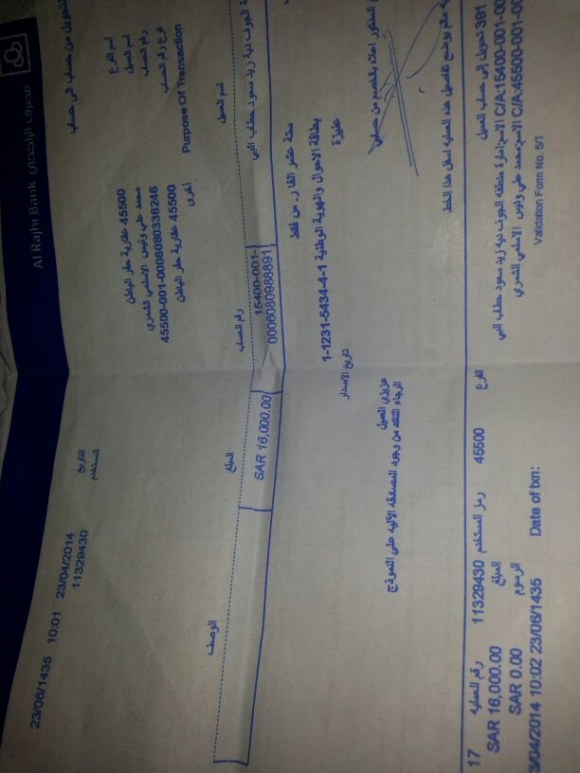 مصرف الراجحي Al Rajhi Bank
التحويل من حساب الى حساب
23/06/1435 10:01 23/04/2014 التاريخ
11329430 المستخدم
اسم الفرع 45500 عقارية حفر الباطن
اسم العميل محمد علي ونيس الاسلمي الشمري
رقم الحساب 45500-001-0006080336246
فرع رقم الحساب 45500 عقارية حفر الباطن
Purpose Of Transaction أخرى
اسم العميل رقم الحساب المبلغ الوصف
الجوف دية زيد سعود حطاب
15400-001-0006080988891
SAR 16,000.00
ستة عشر الفا ر. س فقط
بطاقة الاحوال والهوية الوطنية 1-1231-5434-4-1
عنيزة
تاريخ الاصدار
المذكور اعلاه بالخصم من حسابي
عزيزي العميل
الرجاء التاكد من وجود المصادقة الآلية على النموذج
يتم توضيح تفاصيل هذه العملية اسفل هذا الخط
391 تحويل إلى حساب العميل الفرع 45500 رمز المستخدم 11329430 رقم العملية 17
C/A:15400-001-00 الاسم:امارة منطقة الجوف دية زيد سعود حطاب المبلغ SAR 16,000.00
C/A:45500-001-00 الاسم:محمد علي ونيس الاسلمي الشمري الرسوم SAR 0.00
Validation Form No. 5/T Date of txn: 23/06/1435 10:02 3/04/2014